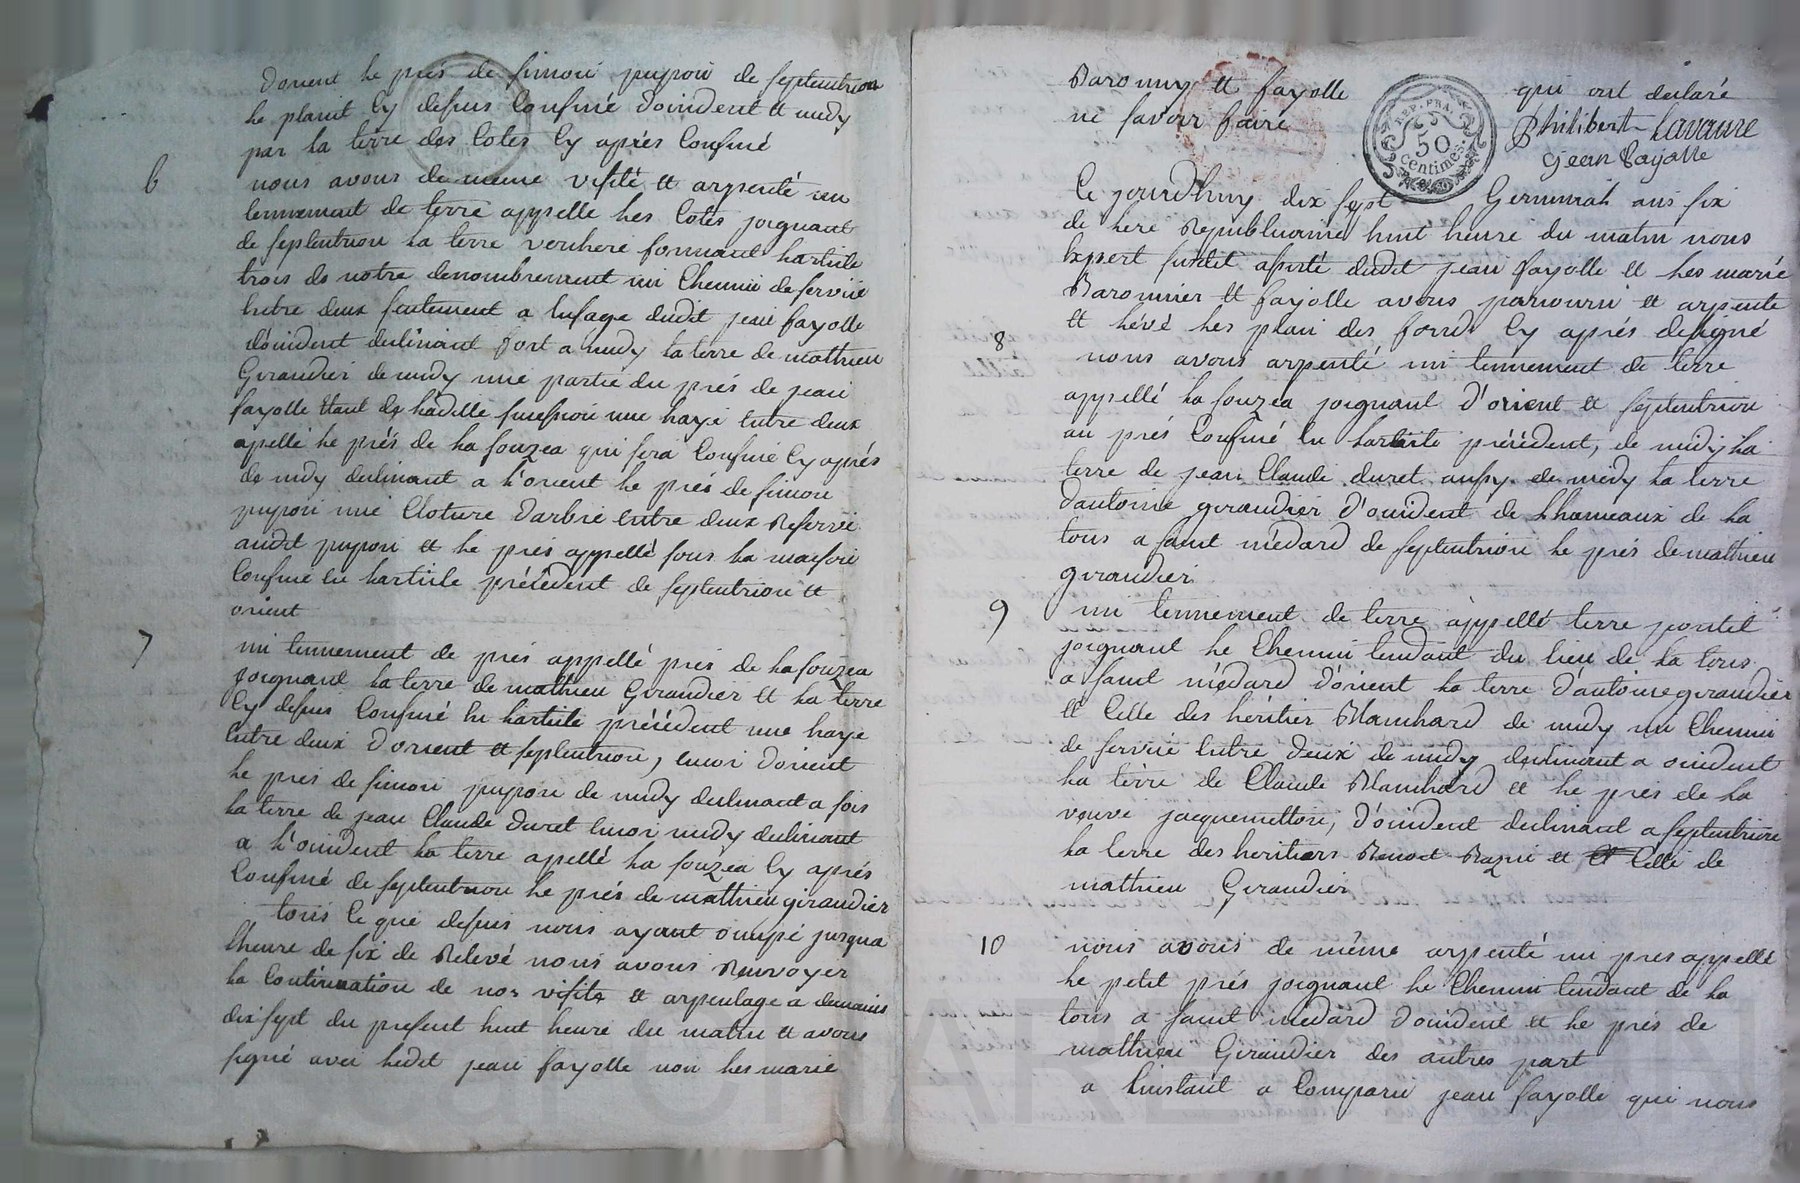 dorient he prés de simon pupon de septentrion
he planit cy desus confiné doindent et midy
par la terre des cotes cy aprés confiné
6 nous avons de meme visité et arpenté un
tennement de terre appelle hes cotes joignant
de septentrion la terre verchere formant hartisle
trois de notre denombrement un chemin de servise
entre deux seulement a lusage dudit jean fayolle
d'oindent declinant fort a midy la terre de mathieu
Giraudier de midy une partie du prés de jean
fayolle une haye entre deux
apellé he prés de la fouzea qui sera confiné cy aprés
de midy declinant a h'orient he prés de simon
pupon une cloture darbre entre deux Reservé
audit pupon et he prés appellé sous la maison
confiné en hartisle précédent de septentrion et
orient
7 un tennement de prés appellé prés de la fouzea
joignant la terre de mathieu Giraudier et la terre
cy desus confiné en hartisle précédent une haye
entre deux d'orient et septentrion, encor d'orient
he prés de simon pupon de midy declinant a soir
la terre de jean claude duret encor midy declinant
a h'oindent la terre apellé la fouzea cy aprés
confiné de septentrion he prés de mathieu giraudier
tous ce que desus nous ayant ocupé jusqua
lheure de six de Relevé nous avons Renvoyer
la continuation de nos visite et arpentage a demains
dix sept du present huit heure du matin et avons
signé avec hedit jean fayolle non hes marié
Baronnier et fayolle qui ont declaré
ne savoir faire
REP. FRA.
50
centimes.
Philibert Lavaure
jean fayolle
Ce jourdhuy dix sept Germinal ans six
de here Republicaine huit heure du matin nous
Expert susdit asisté dudit jean fayolle et hes marié
Baronnier et fayolle avons parcouru et arpenté
et hévé hes plan des fonds cy aprés designé
8 nous avons arpenté un tennement de terre
appellé la fouzea joignant d'orient et septentrion
au prés confiné en hartisle précédent, de midy la
terre de jean claude duret ausy de midy la terre
d'antoine giraudier d'oindent de hhameaux de la
tous a saint médard de septentrion he prés de mathieu
giraudier
9 un tennement de terre appellé terre portel
joignant he chemin tendant du lieu de la tous
a saint médard d'orient la terre d'antoine giraudier
et celle des héritier Blanchard de midy un chemin
de servise entre deux de midy declinant a oindent
la terre de claude Blanchard et he prés de la
veuve jacquemetton, d'oindent declinant a septentrion
la terre des heritiers Benoet Bazin et celle de
mathieu Giraudier
10 nous avons de même arpenté un pres appellé
he petit prés joignant he chemin tendant de la
tous a saint médard doindent et he prés de
mathieu Giraudier des autres part
a linstant a comparu jean fayolle qui nous